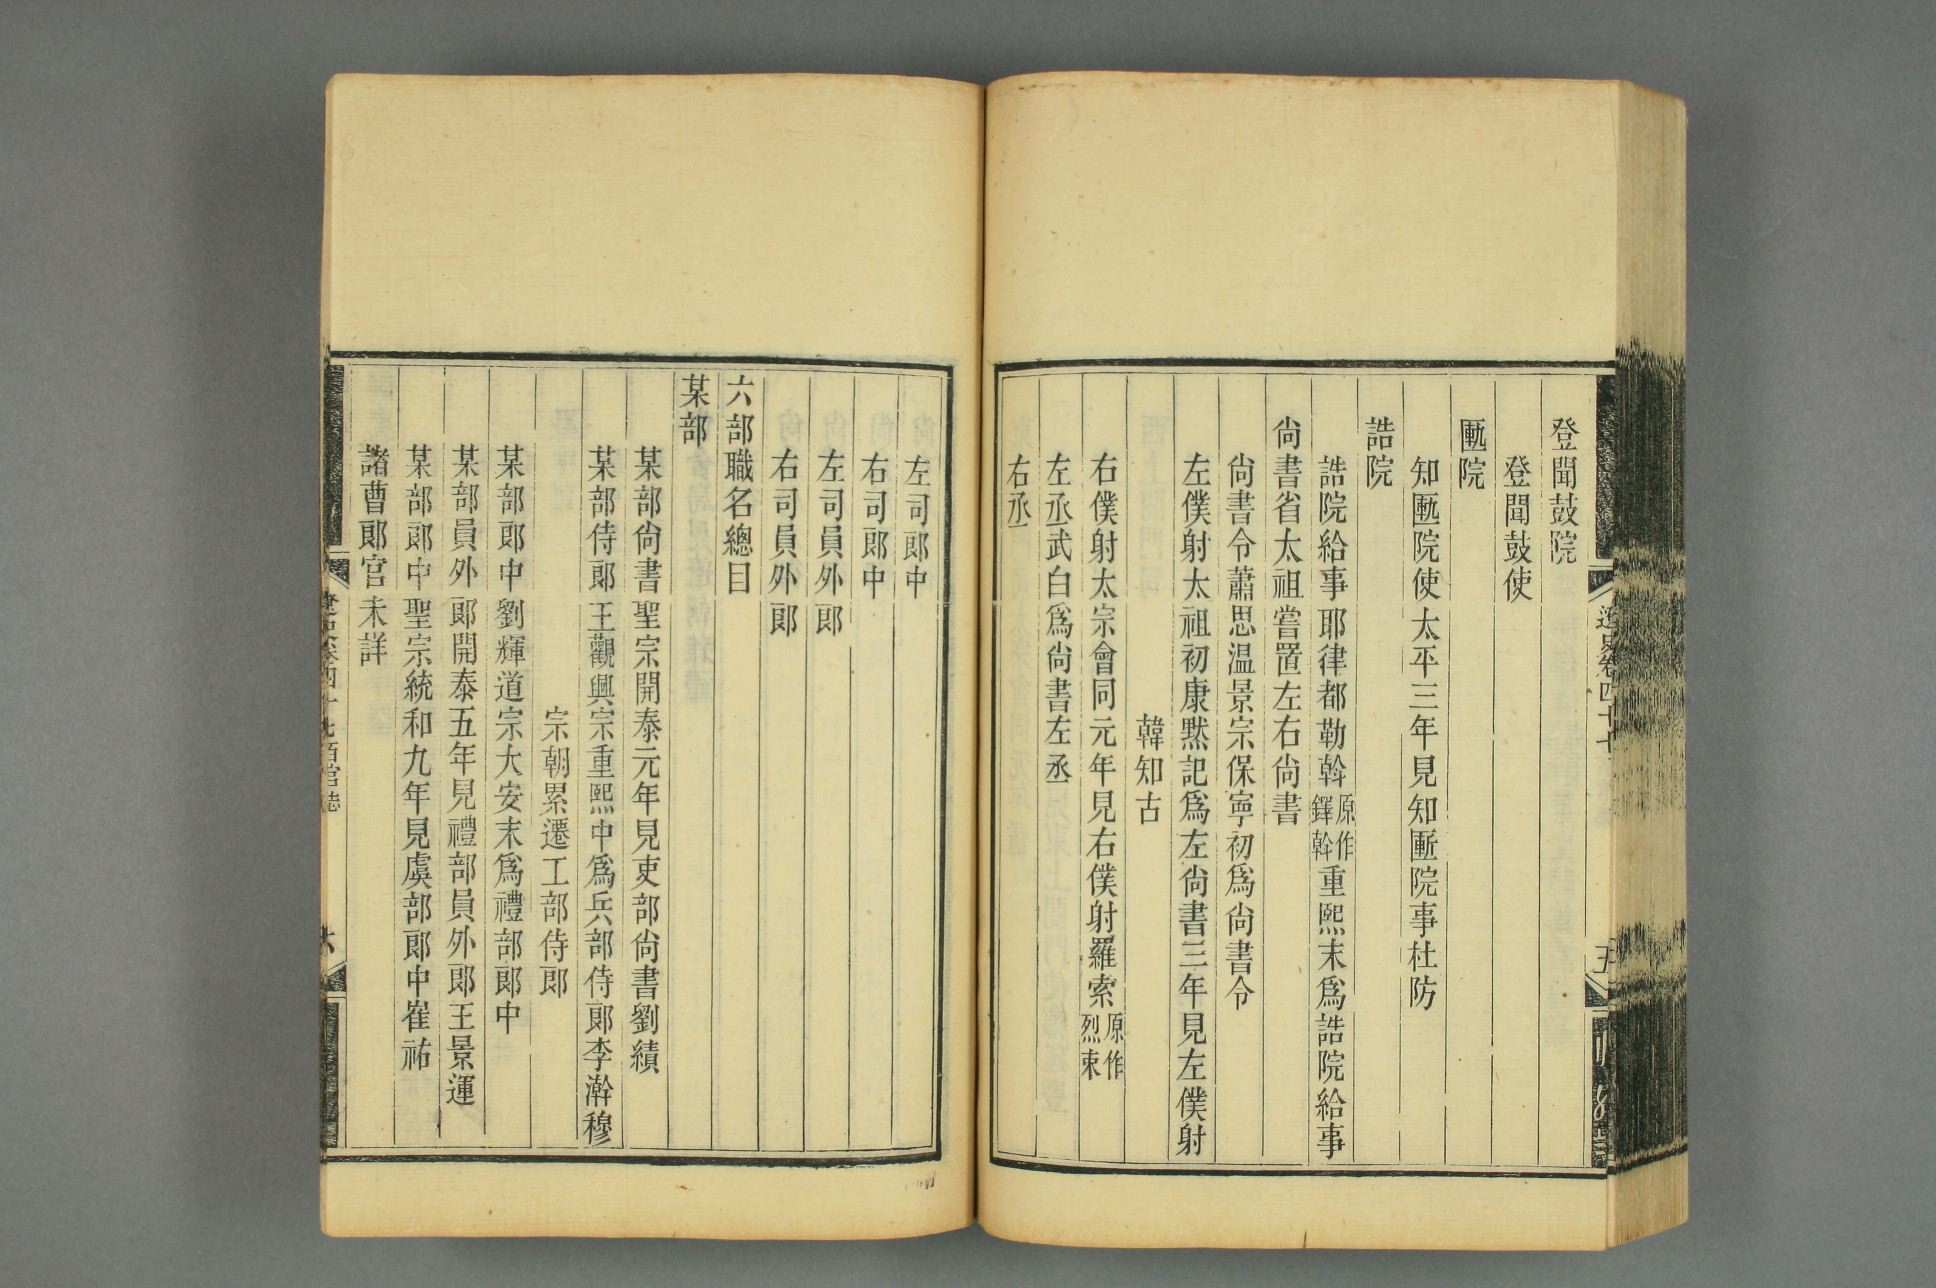 登聞鼓院
登聞鼓使
匭院
知匭院使太平三年見知匭院事杜防
誥院
誥院給事耶律都勒斡原作鐸斡重熙末爲誥院給事
尙書省太祖嘗置左右尙書
尙書令蕭思温景宗保寧初爲尙書令
左僕射太祖初康默記爲左尙書三年見左僕射
韓知古
右僕射太宗會同元年見右僕射羅索原作烈束
左丞武白爲尙書左丞
右丞
遼史卷四十七
五
左司郎中
右司郎中
左司員外郎
右司員外郎
六部職名總目
某部
某部尙書聖宗開泰元年見吏部尙書劉績
某部侍郎王觀興宗重熙中爲兵部侍郎李澣穆
宗朝累遷工部侍郎
某部郎中劉輝道宗大安末爲禮部郎中
某部員外郎開泰五年見禮部員外郎王景運
某部郎中聖宗統和九年見虞部郎中崔祐
諸曹郎官未詳
遼史卷四十七百官志
六